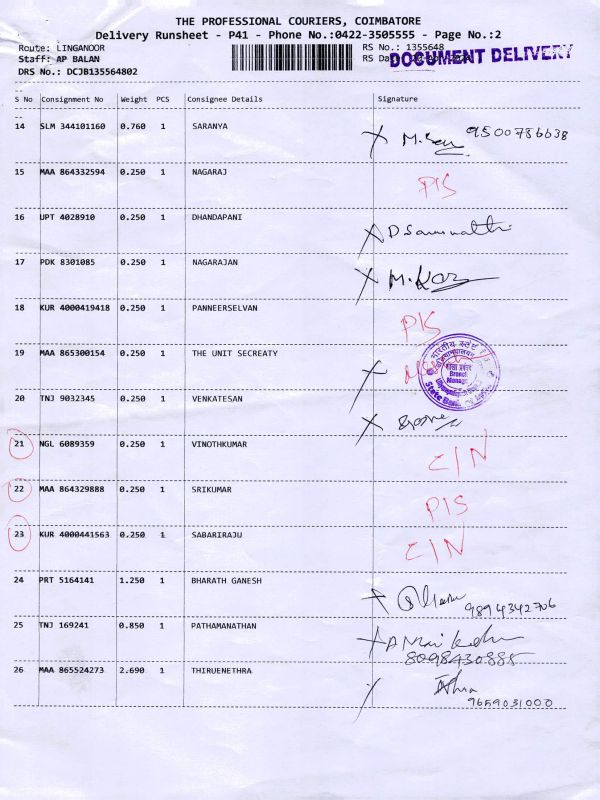 THE PROFESSIONAL COURIERS, COIMBATORE
Delivery Runsheet - P41 - Phone No.:0422-3505555 - Page No.:2
Route: LINGANOOR RS No.: 1355648
Staff: AP BALAN RS Da DOCUMENT DELIVERY
DRS No.: DCJB135564802
S No Consignment No Weight PCS Consignee Details Signature
14 SLM 344101160 0.760 1 SARANYA 9500786638
15 MAA 864332594 0.250 1 NAGARAJ P/S
16 UPT 4028910 0.250 1 DHANDAPANI
17 PDK 8301085 0.250 1 NAGARAJAN
18 KUR 4000419418 0.250 1 PANNEERSELVAN P/S
19 MAA 865300154 0.250 1 THE UNIT SECREATY
भारतीय स्टेट
शाखा प्रबंधक
Branch
Manager
State Bank of India
20 TNJ 9032345 0.250 1 VENKATESAN
21 NGL 6089359 0.250 1 VINOTHKUMAR C/N
22 MAA 864329888 0.250 1 SRIKUMAR P/S
23 KUR 4000441563 0.250 1 SABARIRAJU C/N
24 PRT 5164141 1.250 1 BHARATH GANESH 9894342706
25 TNJ 169241 0.850 1 PATHAMANATHAN
8098430885
26 MAA 865524273 2.690 1 THIRUENETHRA
9659031000